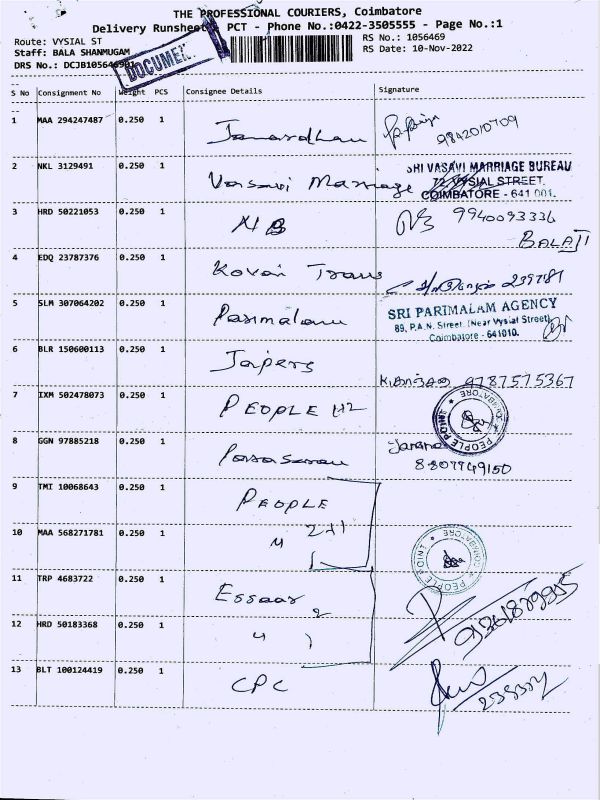 THE PROFESSIONAL COURIERS, Coimbatore
Delivery Runsheet PCT - Phone No.:0422-3505555 - Page No.:1
Route: VYSIAL ST
RS No.: 1056469
Staff: BALA SHANMUGAM
RS Date: 10-Nov-2022
DRS No.:
DOCUMENT
S No Consignment No Weight PCS Consignee Details Signature
1 MAA 294247487 0.250 1 Janardhan
9842010709
2 NKL 3129491 0.250 1 Vasavi Marriage
SRI VASAVI MARRIAGE BUREAU
72, VYSIAL STREET,
COIMBATORE - 641 001.
3 HRD 50221053 0.250 1 MB
9940093336
BALAJI
4 EDQ 23787376 0.250 1 Kovai Trans
5 SLM 307064202 0.250 1 Parimalam
SRI PARIMALAM AGENCY
89, P.A.N. Street, (Near Vysial Street)
Coimbatore - 641010.
6 BLR 150600113 0.250 1 Jaipers
9787575367
7 IXM 502478073 0.250 1 PEOPLE
8 GGN 97885218 0.250 1
9 TMT 10068643 0.250 1 PEOPLE
10 MAA 568271781 0.250 1 " 2+1
PEOPLE POINT
COIMBATORE
11 TRP 4683722 0.250 1 Essaar 2
12 HRD 50183368 0.250 1 "
13 BLT 100124419 0.250 1 CPC